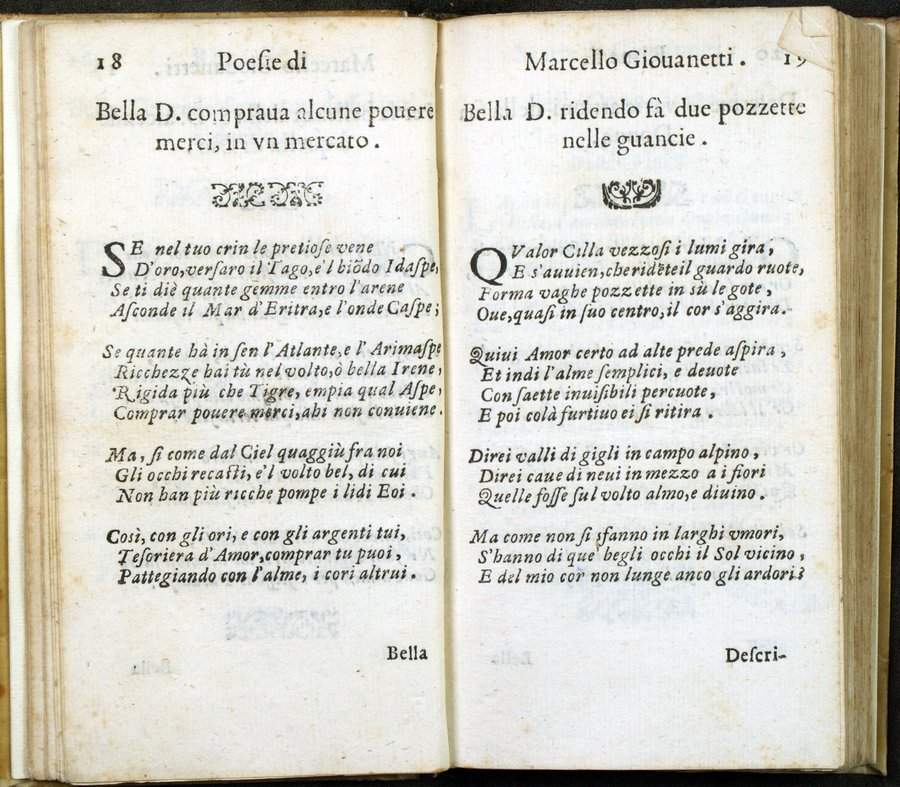 18 Poesie di
Bella D. compraua alcune pouere
merci, in vn mercato .
SE nel tuo crin le pretiose vene
D'oro, versaro il Tago, e'l biōdo Idaspe,
Se ti diè quante gemme entro l'arene
Asconde il Mar d'Eritra, e l'onde Caspe;
Se quante hà in sen l'Atlante, e l'Arimaspe
Ricchezze hai tù nel volto, ò bella Irene,
Rigida più che Tigre, empia qual Aspe,
Comprar pouere merci, ahi non conuiene.
Ma, si come dal Ciel quaggiù fra noi
Gli occhi recasti, e'l volto bel, di cui
Non han più ricche pompe i lidi Eoi .
Così, con gli ori, e con gli argenti tui,
Tesoriera d'Amor, comprar tu puoi ,
Pattegiando con l'alme, i cori altrui .
Bella
Marcello Giouanetti . 19
Bella D. ridendo fà due pozzette
nelle guancie .
QValor Cilla vezzosi i lumi gira ,
E s'auuien, che ridēte il guardo ruote,
Forma vaghe pozzette in sù le gote ,
Oue, quasi in suo centro, il cor s'aggira.
Quiui Amor certo ad alte prede aspira ,
Et indi l'alme semplici, e deuote
Con saette inuisibili percuote,
E poi colà furtiuo ei si ritira .
Direi valli di gigli in campo alpino ,
Direi caue di neui in mezzo a i fiori
Quelle fosse sul volto almo, e diuino .
Ma come non si sfanno in larghi vmori,
S'hanno di que' begli occhi il Sol vicino ,
E del mio cor non lunge anco gli ardori?
Descri-